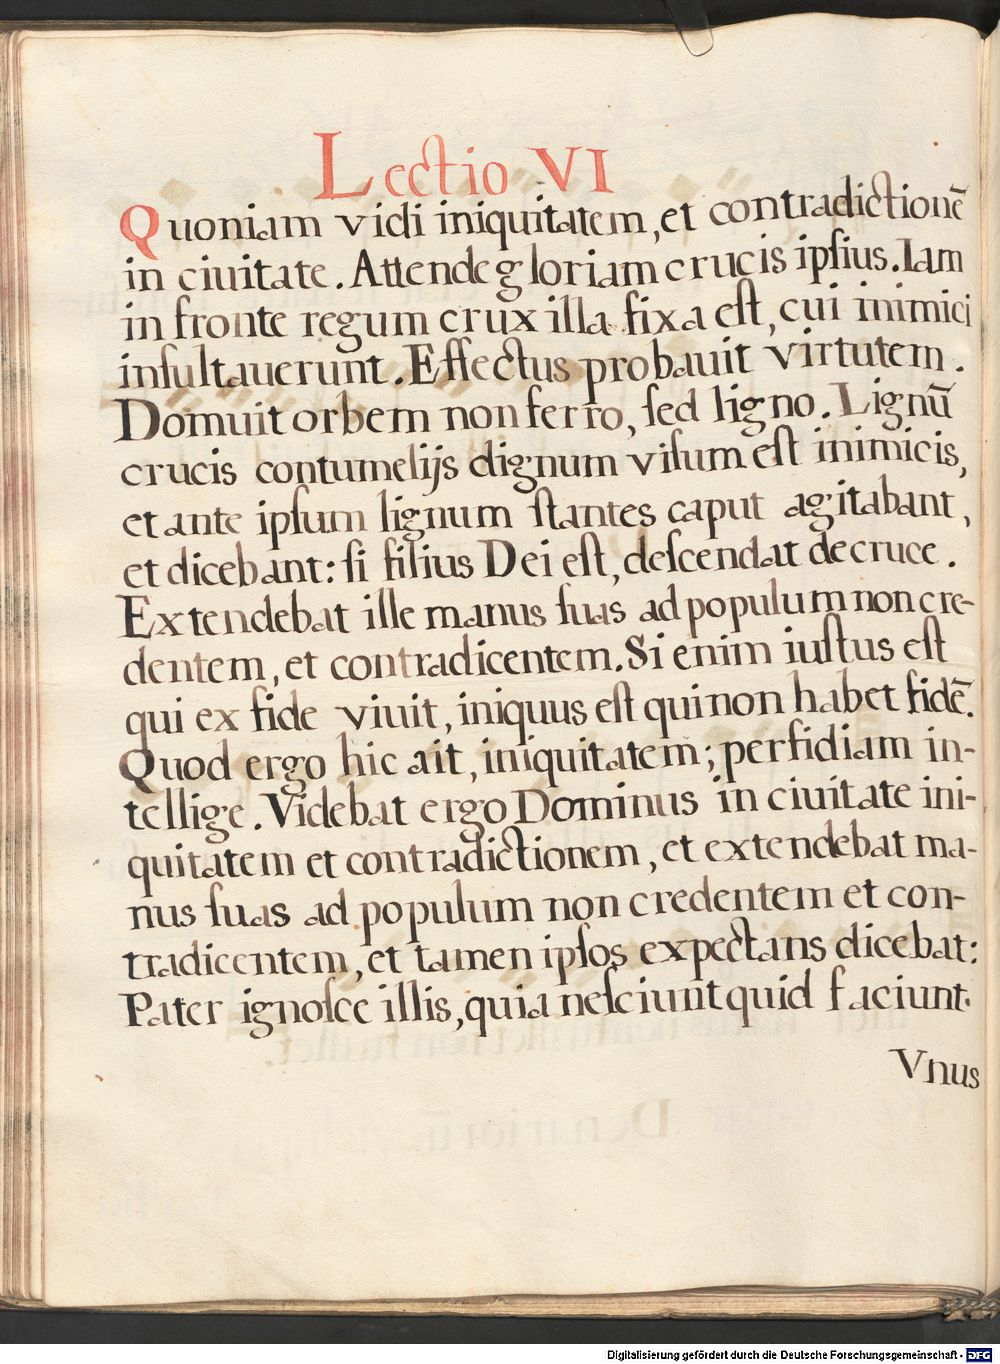 Lectio VI
Quoniam vidi iniquitatem, et contradictionē
in ciuitate. Attende gloriam crucis ipſius. Iam
in fronte regum crux illa fixa eſt, cui inimici
inſultauerunt. Effectus probauit virtutem.
Domuit orbem non ferro, ſed ligno. Lignū
crucis contumelijs dignum viſum eſt inimicis,
et ante ipſum lignum ſtantes caput agitabant,
et dicebant: ſi filius Dei eſt, deſcendat de cruce.
Extendebat ille manus ſuas ad populum non cre-
dentem, et contradicentem. Si enim iuſtus eſt
qui ex fide viuit, iniquus eſt qui non habet fidē.
Quod ergo hic ait, iniquitatem; perfidiam in-
tellige. Videbat ergo Dominus in ciuitate ini-
quitatem et contradictionem, et extendebat ma-
nus ſuas ad populum non credentem et con-
tradicentem, et tamen ipſos expectans dicebat:
Pater ignoſce illis, quia neſciunt quid faciunt.
Vnus
Digitalisierung gefördert durch die Deutsche Forschungsgemeinschaft - DFG